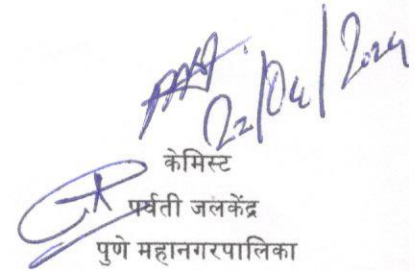 22/04/2024
केमिस्ट
पर्वती जलकेंद्र
पुणे महानगरपालिका